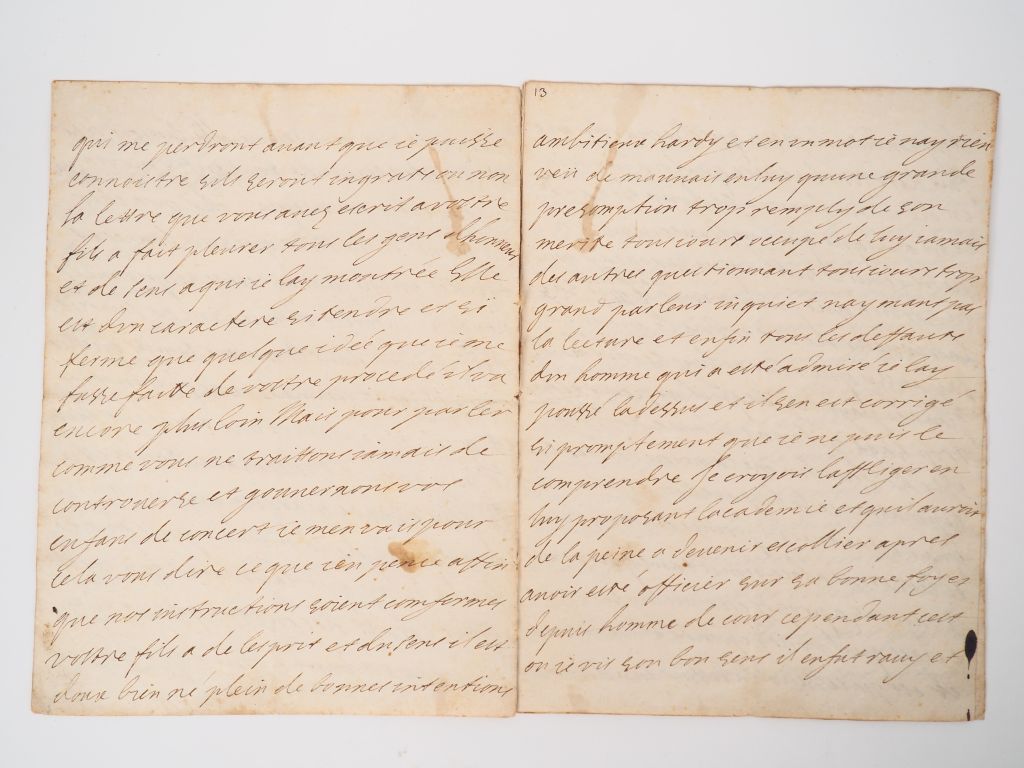 qui me perdront auant que ie puisse
connoistre sils seront ingrats ou non
la lettre que vous auez escrit a vostre
fils a fait pleurer tous les gens dhonneur
et de sens a qui ie lay montrée Elle
est dun caractere si tendre et si
ferme que quelque idée que ie me
fusse faitte de vostre procedé il va
encore plus loin Mais pour parler
comme vous ne traittons iamais de
controuerse et gouuernons vos
enfans de concert ie men vais pour
cela vous dire ce que ien pence affin
que nos instructions soient comformes
vostre fils a de lesprit et du sens il est
doux bien né plein de bonnes intentions
13
ambitieux hardy et en un mot ie nay rien
veu de mauuais en luy quune grande
presomption trop remply de son
merite tousiours occupé de luy iamais
des autres questionnant tousiours trop
grand parleur inquiet naymant pas
la lecture et enfin tous les deffauts
dun homme qui a esté admiré ie lay
poussé la dessus et il sen est corrigé
si promptement que ie ne puis le
comprendre Je croyois laffliger en
luy proposant lacademie et quil auroit
de la peine a deuenir escollier apres
auoir esté officier sur sa bonne foy et
depuis homme de cour cependant cest
ou ie vis son bon sens il en fut rauy et